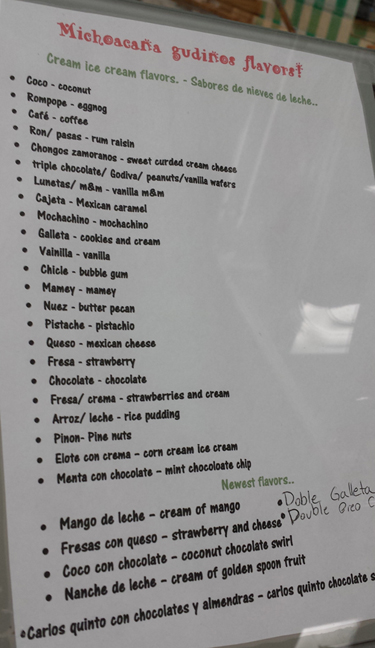 Michoacaña gudiños flavors!
Cream ice cream flavors. - Sabores de nieves de leche..
• Coco - coconut
• Rompope - eggnog
• Café - coffee
• Ron/ pasas - rum raisin
• Chongos zamoranos - sweet curded cream cheese
• triple chocolate/ Godiva/ peanuts/vanilla wafers
• Lunetas/ m&m - vanilla m&m
• Cajeta - Mexican caramel
• Mochachino - mochachino
• Galleta - cookies and cream
• Vainilla - vanilla
• Chicle - bubble gum
• Mamey - mamey
• Nuez - butter pecan
• Pistache - pistachio
• Queso - mexican cheese
• Fresa - strawberry
• Chocolate - chocolate
• Fresa/ crema - strawberries and cream
• Arroz/ leche - rice pudding
• Pinon- Pine nuts
• Elote con crema – corn cream ice cream
• Menta con chocolate – mint chocoloate chip
Newest flavors..
• Mango de leche – cream of mango
• Fresas con queso – strawberry and cheese
• Coco con chocolate – coconut chocolate swirl
• Nanche de leche – cream of golden spoon fruit
•Carlos quinto con chocolates y almendras – carlos quinto chocolate
•Doble Galleta
•Double Oreo